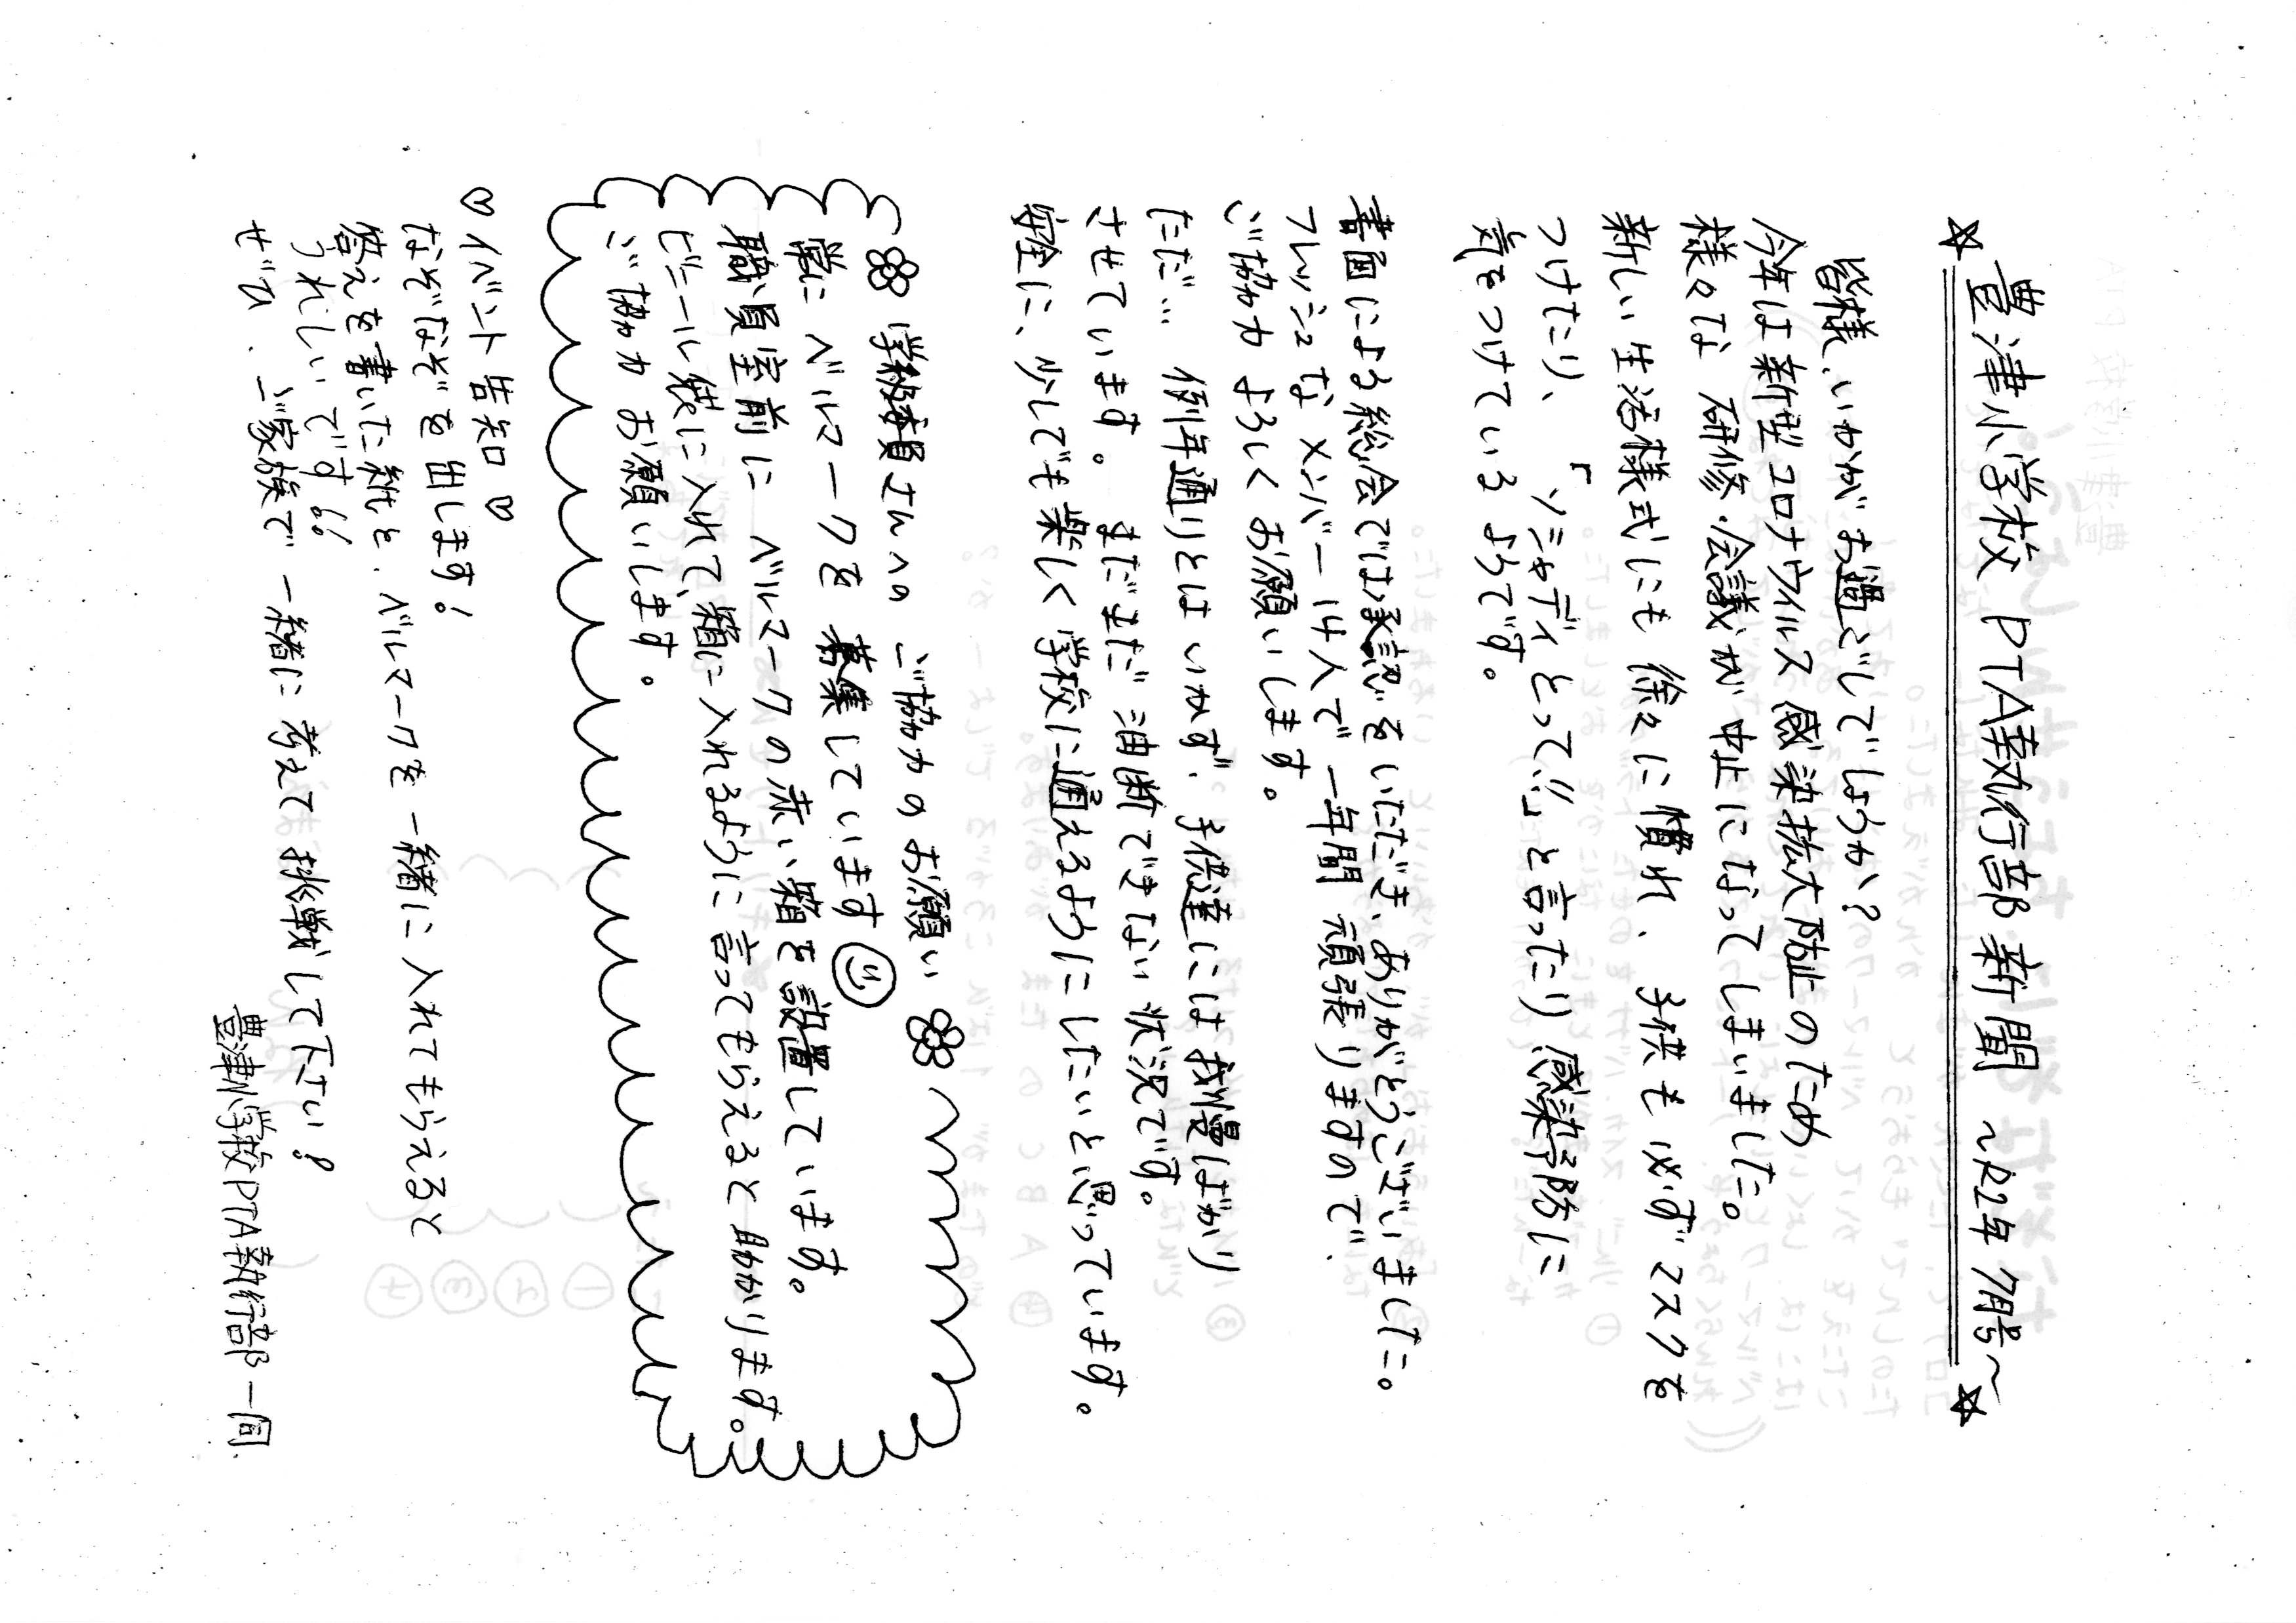 ☆ 豊津小学校 PTA執行部新聞 ~R2年7月号~ ☆
皆様、いかがお過ごしでしょうか?
今年は新型コロナウイルス感染拡大防止のため
様々な研修・会議が中止になってしまいました。
新しい生活様式にも徐々に慣れ、子供も必ずマスクを
つけたり、「ソーシャルディスタンスとって!!」と言ったり感染予防に
気をつけているようです。
書面による総会では承認をいただき、ありがとうございました。
フレッシュなメンバー14人で一年間頑張りますので、
ご協力よろしくお願いします。
ただ… 例年通りとはいかず、子供達には我慢ばかり
させています。まだまだ油断できない状況です。
安全に、少しでも楽しく学校に通えるようにしたいと思っています。
学級委員さんへのご協力のお願い
常にベルマークを募集しています
職員室前にベルマークの赤い箱を設置しています。
ビニール袋に入れて、箱に入れるように言ってもらえると助かります。
ご協力お願いします。
♡イベント告知♡
なぞなぞを出します!
答えを書いた紙と、ベルマークを一緒に入れてもらえると
うれしいです!!
ぜひ、ご家族で一緒に考えて挑戦して下さい!
豊津小学校PTA執行部一同